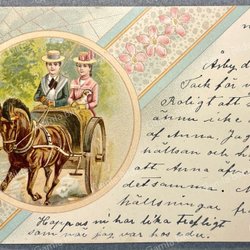 Åsby d
Tack för v
Roligt att
ännu icke
af Anna. Ja
hälsan och h
att Anna äfve
detsamma.
hällsningar
Hoppas ni har lika trefligt
som när jag var hos eder.